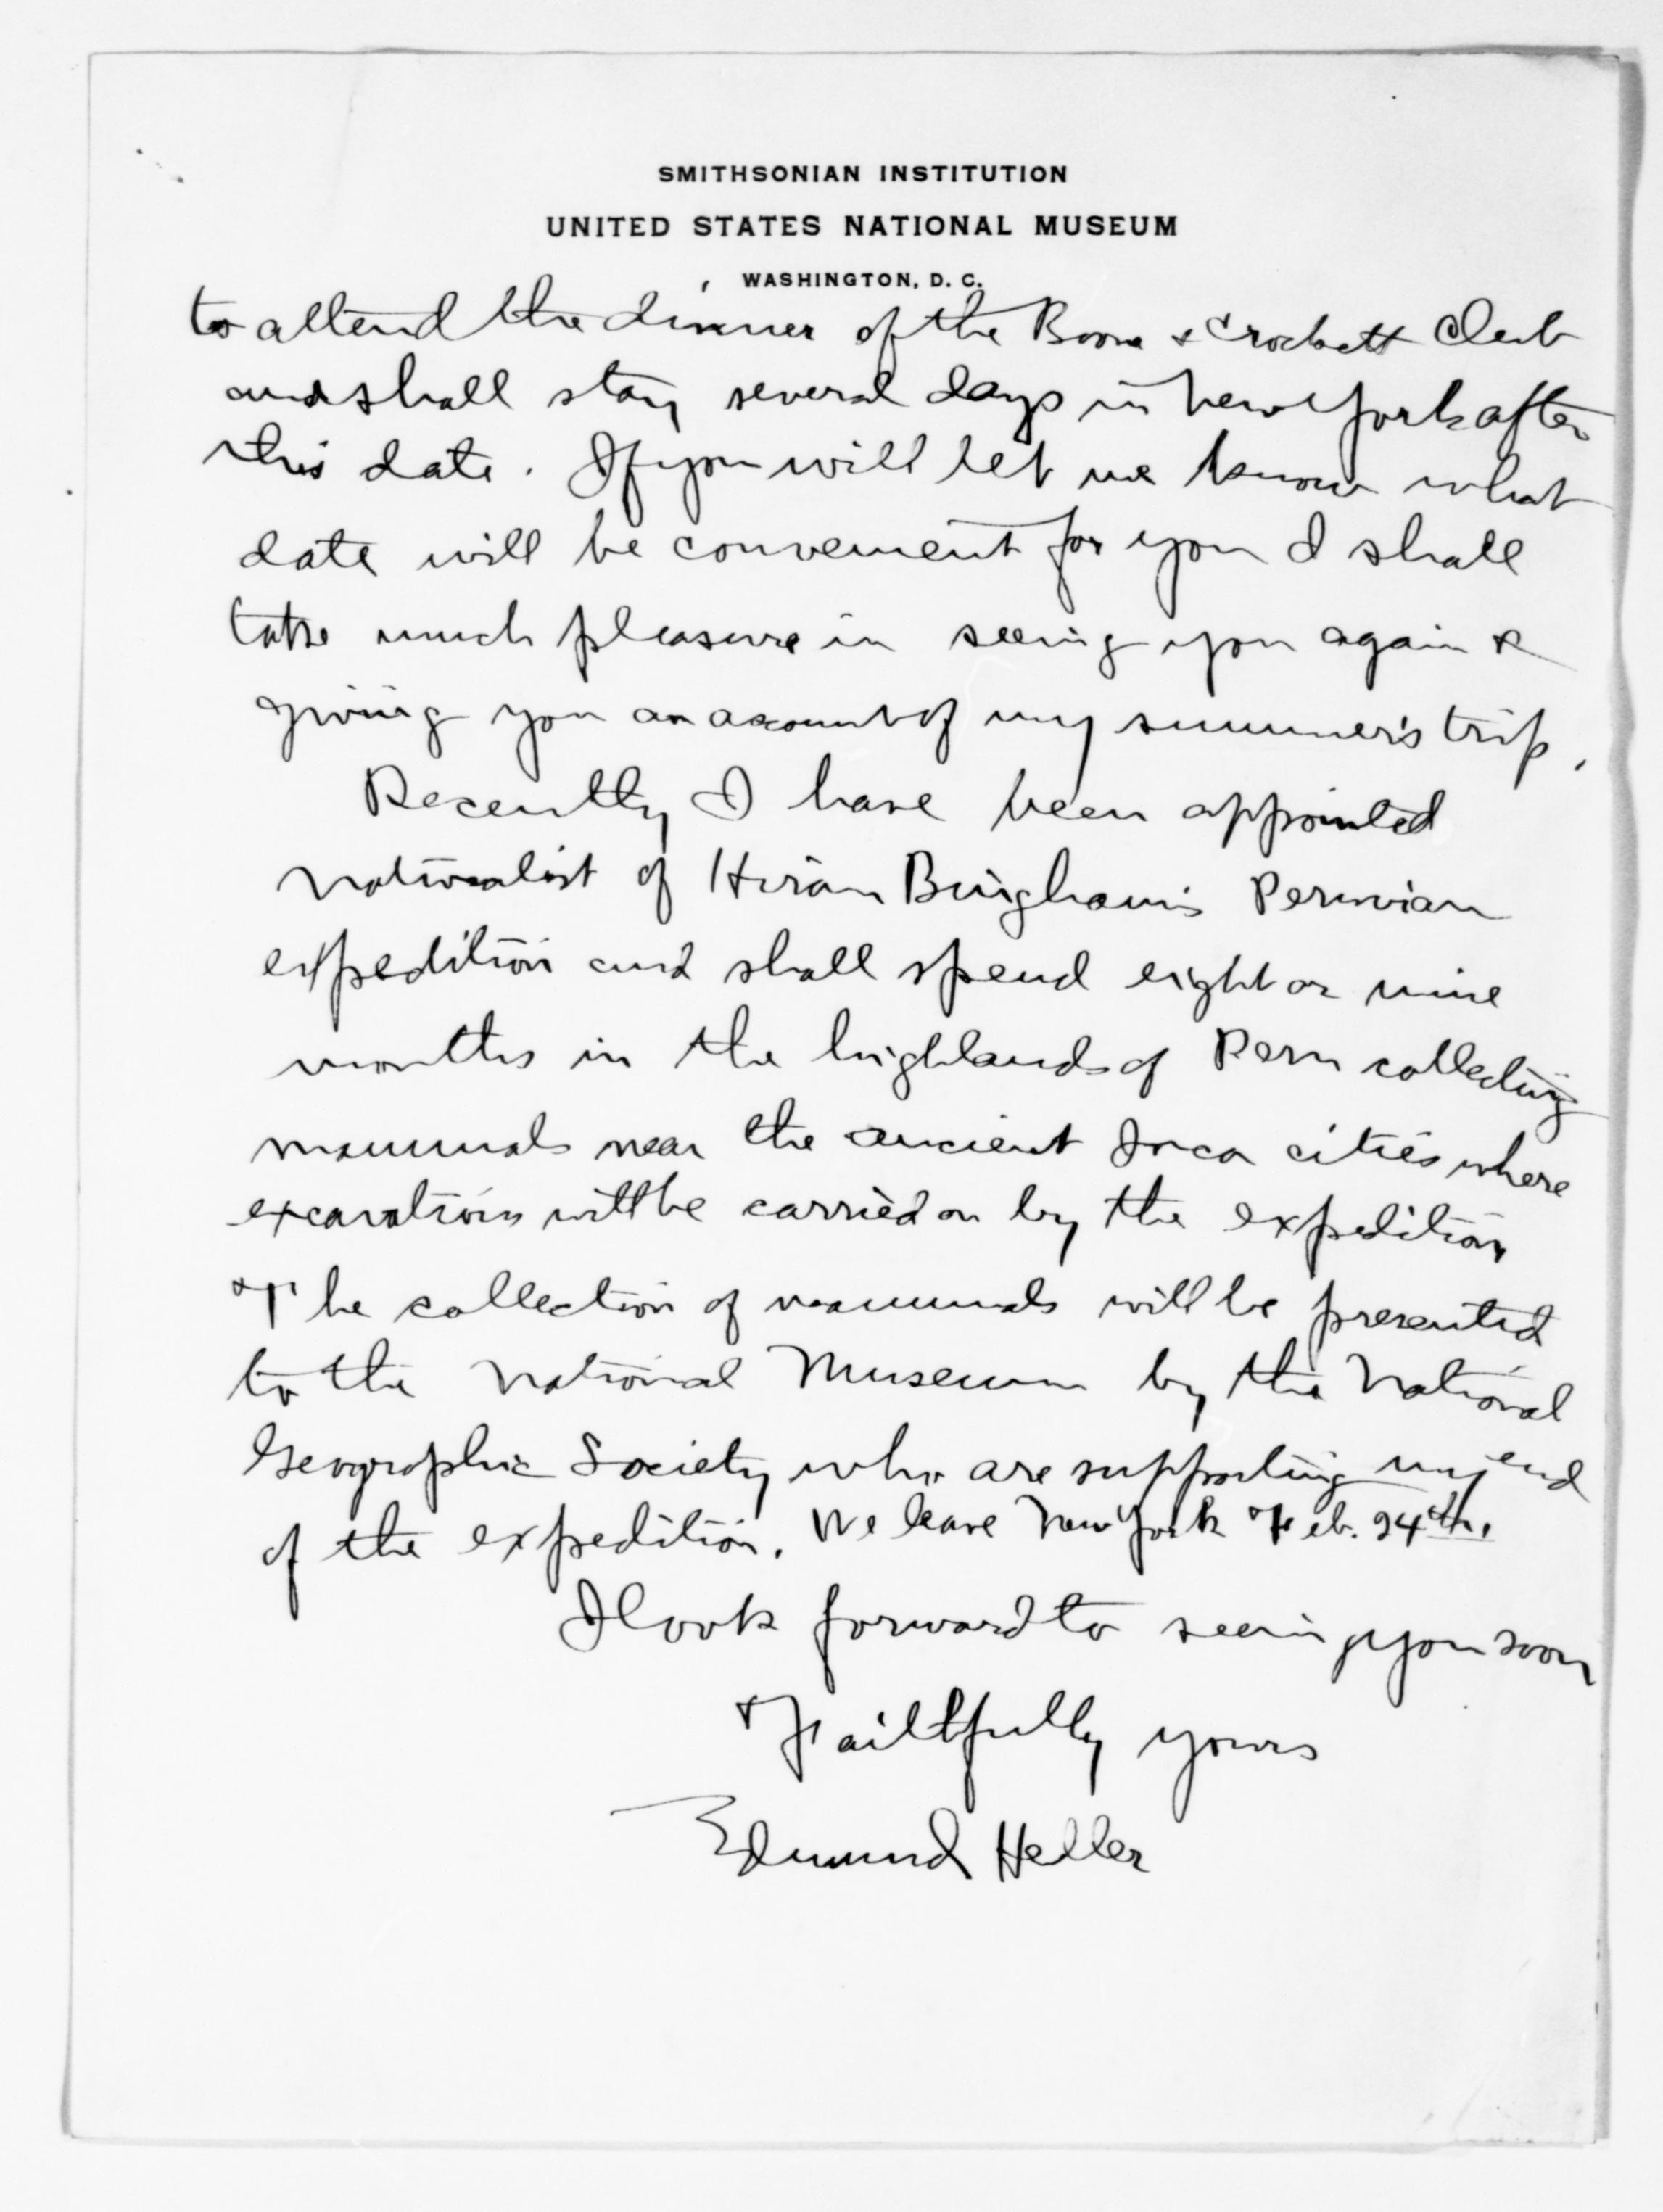 SMITHSONIAN INSTITUTION
UNITED STATES NATIONAL MUSEUM
WASHINGTON, D. C.
to attend the dinner of the Boone & Crockett Club
and shall stay several days in New York after
this date. If you will let me know what
date will be convenient for you I shall
take much pleasure in seeing you again &
giving you an account of my summer's trip.
Recently I have been appointed
naturalist of Hiram Bingham's Peruvian
expedition and shall spend eight or nine
months in the highlands of Peru collecting
mammals near the ancient Inca cities where
excavations will be carried on by the expedition
The collection of mammals will be presented
to the National Museum by the National
Geographic Society who are supporting my end
of the expedition. We leave New York Feb. 24th.
I look forward to seeing you soon
Faithfully yours
Edmund Heller